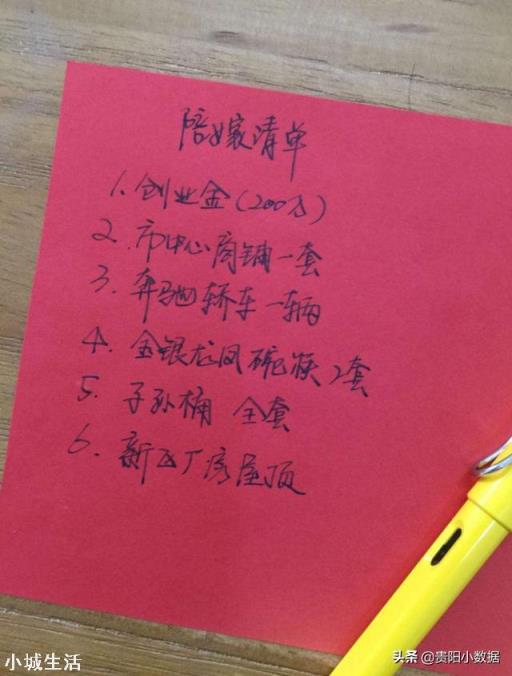 陪嫁清单
1. 创业金(200万)
2. 市中心商铺一套
3. 奔驰轿车一辆
4. 金银龙凤碗筷2套
5. 子孙桶 全套
6. 新五厂房屋顶
小城生活
头条 @贵阳小数据